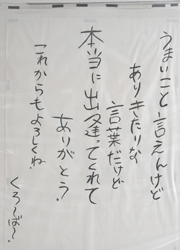 うまいこと言えんけど
ありきたりな
言葉だけど
本当に出逢てくれて
ありがとう!
これからもよろしくね
くろーばー